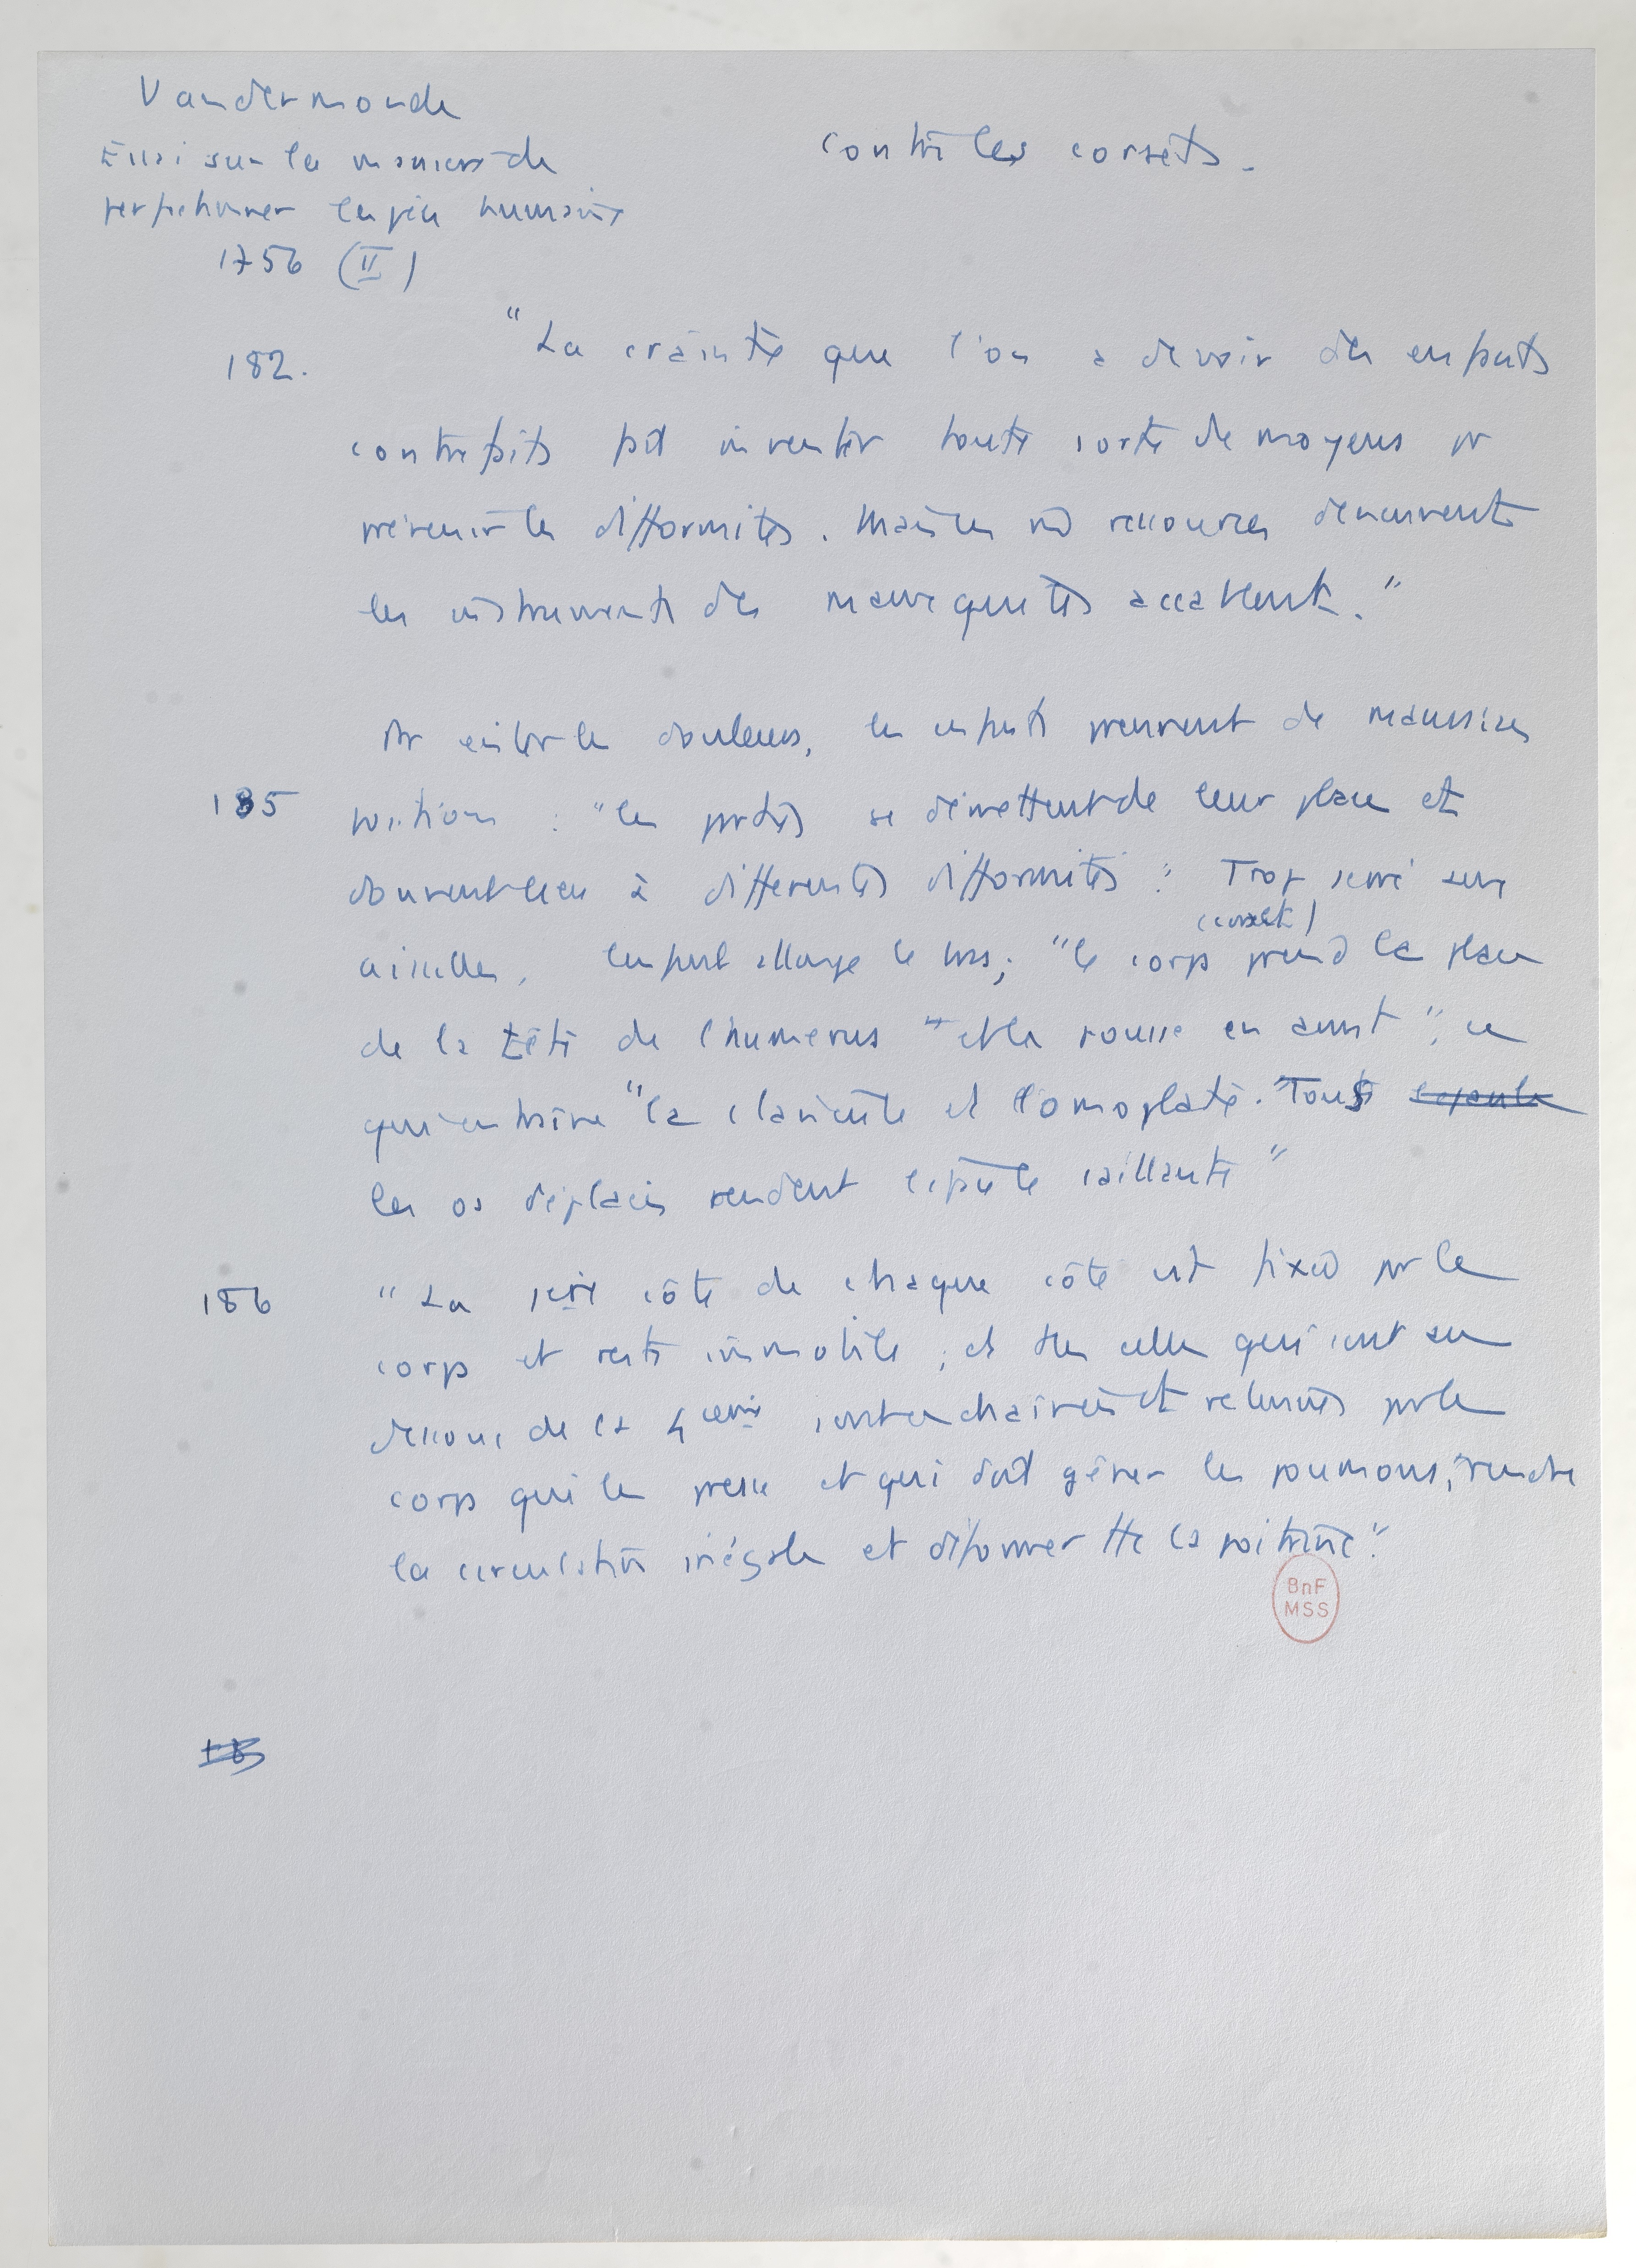 Vandermonde
Essai sur la maniere de
perfectionner l'espèce humaine
1756 (II)
contre les corsets.
182. "La crainte que l'on a de voir des enfants
contrefaits fait inventer toute sorte de moyens pr
prévenir les difformités. Mais ces ressources deviennent
les instruments des maux qui les accablent."
Pr éviter les douleurs, les enfants prennent de mauvaises
185 positions : "les parties se démettent de leur place et
donnent lieu à différentes difformités". Trop serré sur
(corset)
aisselles, l'enfant allonge le bras; "le corps prend la place
de la tête de l'humerus" "et la pousse en avant"; ce
qui entraîne "la clavicule et l'omoplate. Tous
les os déplacés rendent l'épaule saillante"
186 "La 1ère côte de chaque côté est fixée par le
corps et reste immobile; et ttes celles qui sont au
dessous de la 4ème sont enchaînées et retenues par le
corps qui les presse et qui doit gêner les poumons, rendre
la circulation inégale et déformer tte la poitrine".
18
BnF
MSS